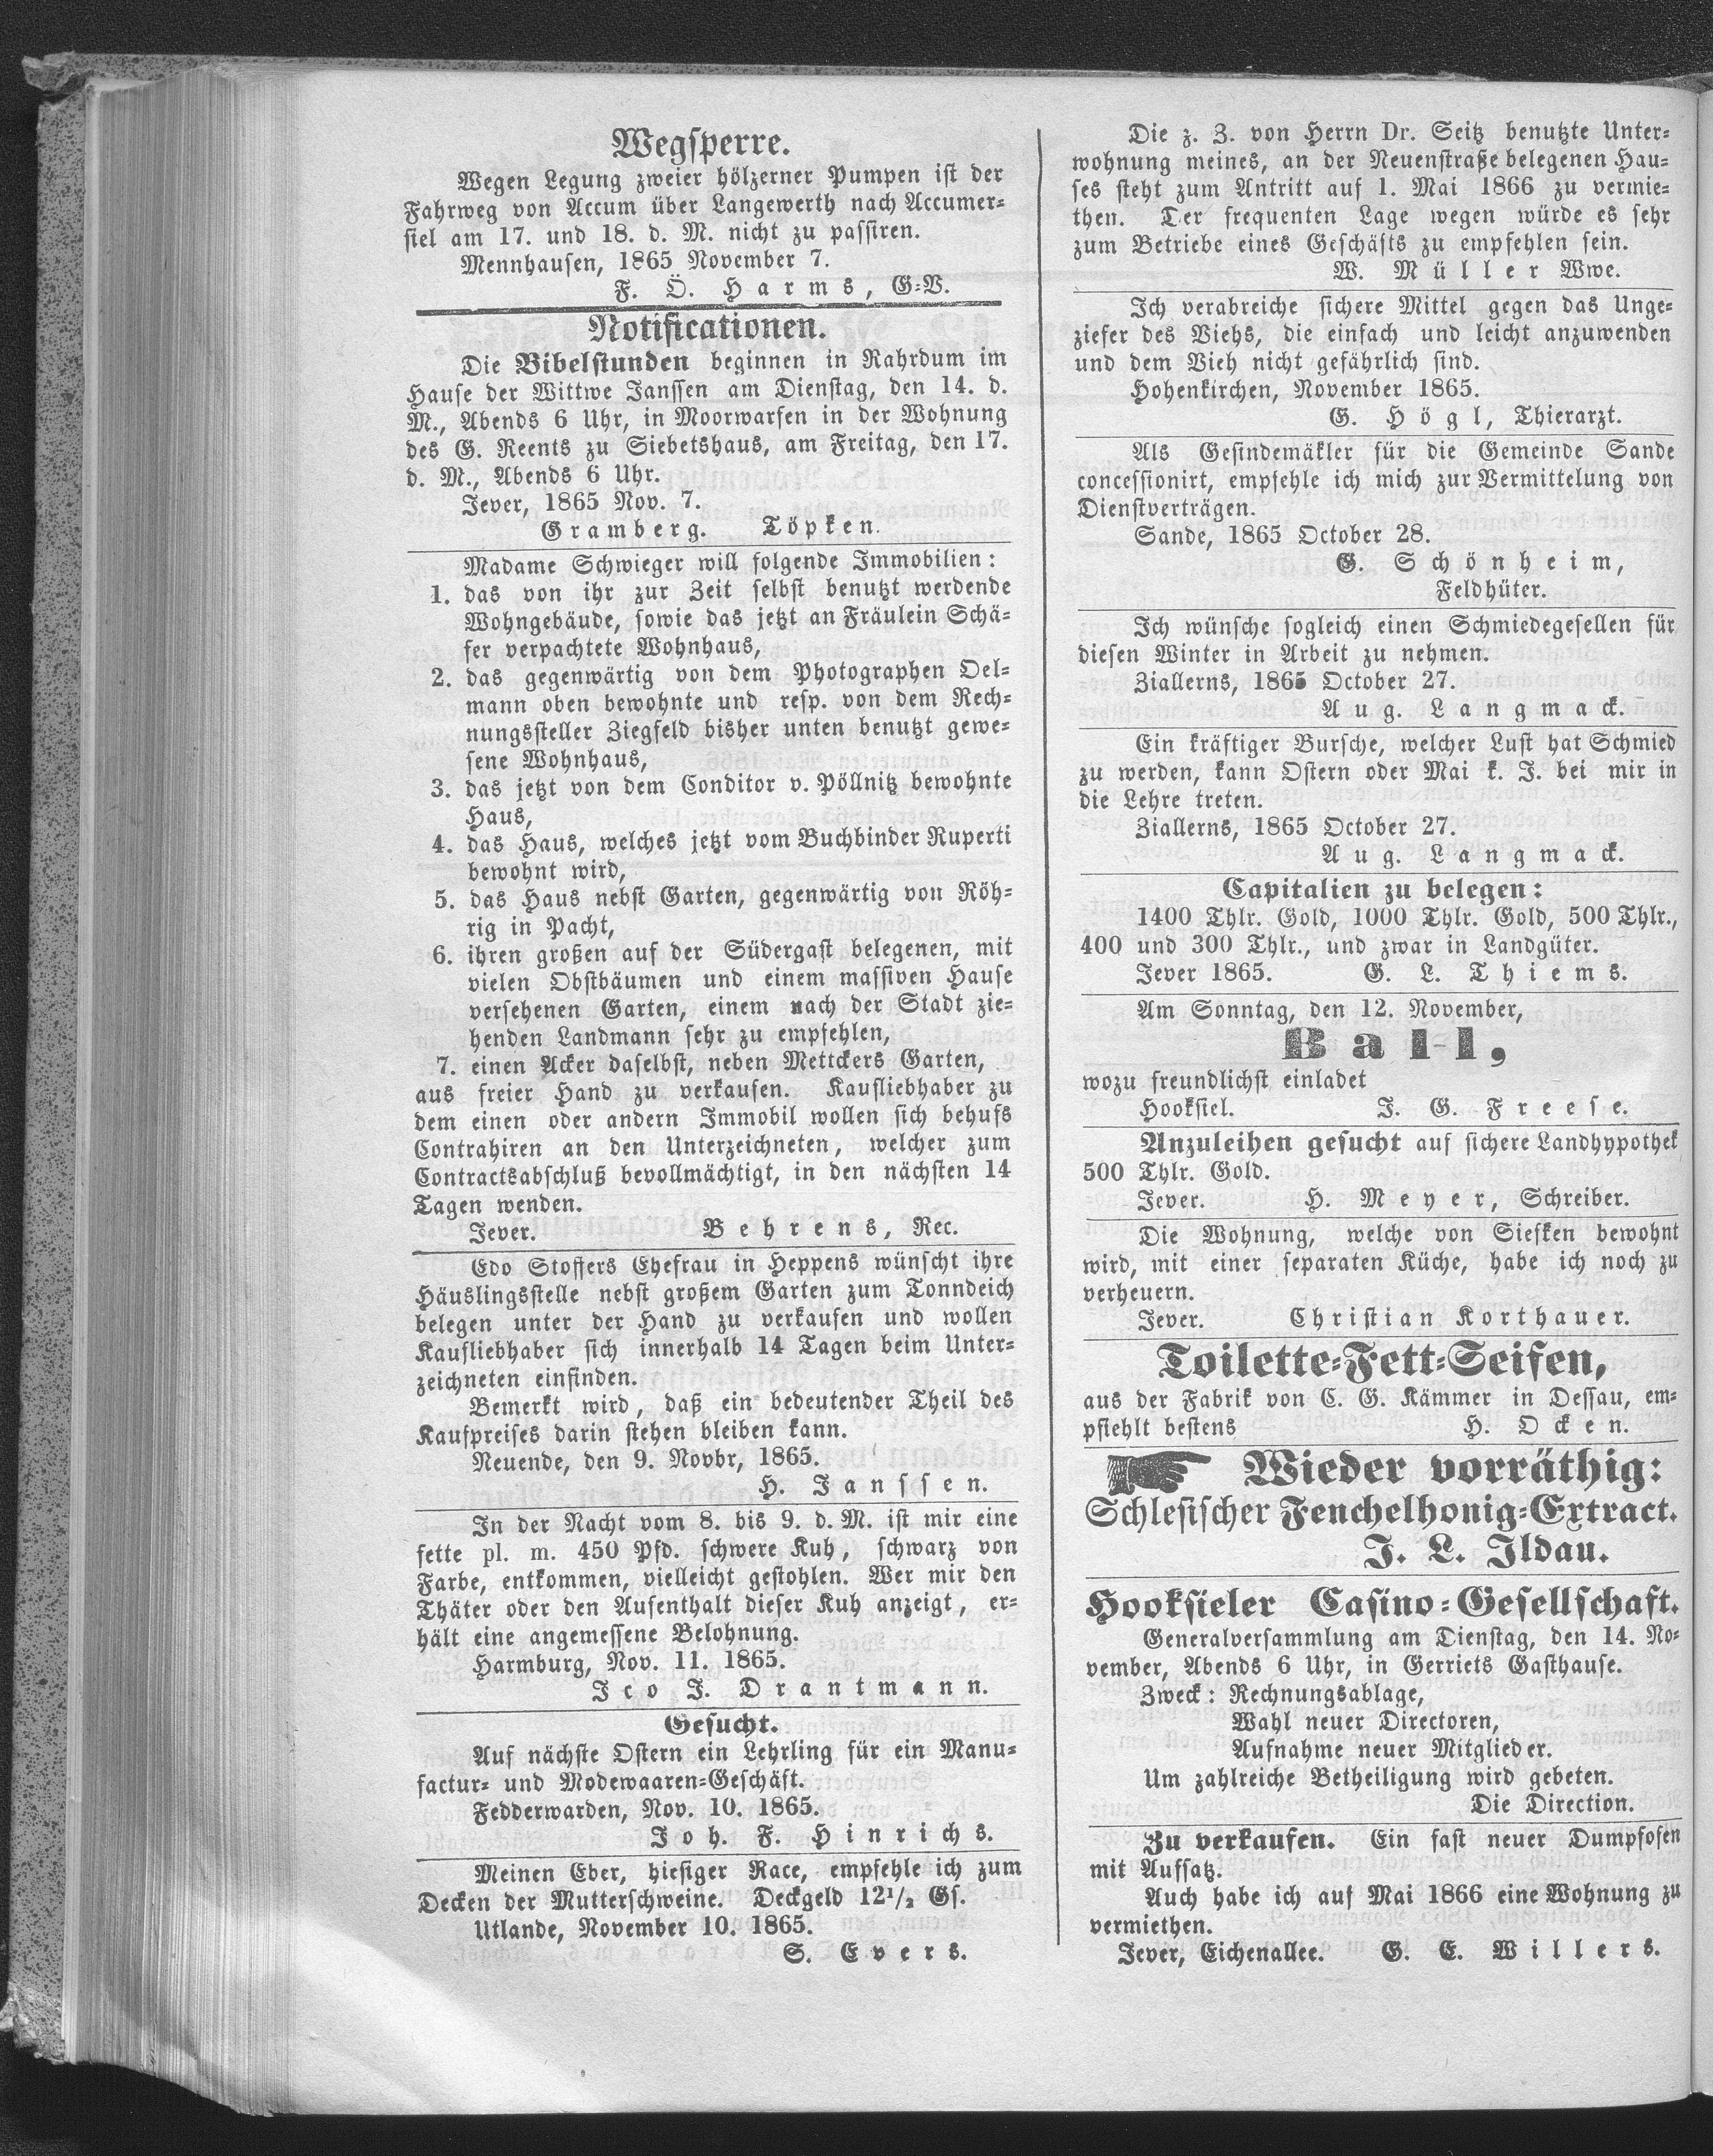 Wegsperre.
Wegen Legung zweier hölzerner Pumpen ist der
Fahrweg von Accum über Langewerth nach Accumer-
siel am 17. und 18. d. M. nicht zu passiren.
Mennhausen, 1865 November 7.
F. Ö. Harms, G=V.
Notificationen.
Die Bibelstunden beginnen in Rahrdum im
Hause der Wittwe Janssen am Dienstag, den 14. d.
M., Abends 6 Uhr, in Moorwarfen in der Wohnung
des G. Reents zu Siebetshaus, am Freitag, den 17.
d. M., Abends 6 Uhr.
Jever, 1865 Nov. 7.
Gramberg. Töpken.
Madame Schwieger will folgende Immobilien:
1. das von ihr zur Zeit selbst benutzt werdende
Wohngebäude, sowie das jetzt an Fräulein Schä-
fer verpachtete Wohnhaus,
2. das gegenwärtig von dem Photographen Oel-
mann oben bewohnte und resp. von dem Rech-
nungssteller Ziegfeld bisher unten benutzt gewe-
sene Wohnhaus,
3. das jetzt von dem Conditor v. Pöllnitz bewohnte
Haus,
4. das Haus, welches jetzt vom Buchbinder Ruperti
bewohnt wird,
5. das Haus nebst Garten, gegenwärtig von Röh-
rig in Pacht,
6. ihren großen auf der Südergast belegenen, mit
vielen Obstbäumen und einem massiven Hause
versehenen Garten, einem nach der Stadt zie-
henden Landmann sehr zu empfehlen,
7. einen Acker daselbst, neben Mettckers Garten,
aus freier Hand zu verkaufen. Kaufliebhaber zu
dem einen oder andern Immobil wollen sich behufs
Contrahiren an den Unterzeichneten, welcher zum
Contractsabschluß bevollmächtigt, in den nächsten 14
Tagen wenden.
Jever. Behrens, Rec.
Edo Stoffers Ehefrau in Heppens wünscht ihre
Häuslingsstelle nebst großem Garten zum Tonndeich
belegen unter der Hand zu verkaufen und wollen
Kaufliebhaber sich innerhalb 14 Tagen beim Unter-
zeichneten einfinden.
Bemerkt wird, daß ein bedeutender Theil des
Kaufpreises darin stehen bleiben kann.
Neuende, den 9. Novbr, 1865.
H. Janssen.
In der Nacht vom 8. bis 9. d. M. ist mir eine
fette pl. m. 450 Pfd. schwere Kuh, schwarz von
Farbe, entkommen, vielleicht gestohlen. Wer mir den
Thäter oder den Aufenthalt dieser Kuh anzeigt, er-
hält eine angemessene Belohnung.
Harmburg, Nov. 11. 1865.
Ico J. Drantmann.
Gesucht.
Auf nächste Ostern ein Lehrling für ein Manu-
factur- und Modewaaren-Geschäft.
Fedderwarden, Nov. 10. 1865.
Joh. F. Hinrichs.
Meinen Eber, hiesiger Race, empfehle ich zum
Decken der Mutterschweine. Deckgeld 12 1/2 Gs.
Utlande, November 10. 1865.
S. Evers.
Die z. Z. von Herrn Dr. Seitz benutzte Unter-
wohnung meines, an der Neuenstraße belegenen Hau-
ses steht zum Antritt auf 1. Mai 1866 zu vermie-
then. Der frequenten Lage wegen würde es sehr
zum Betriebe eines Geschäfts zu empfehlen sein.
W. Müller Wwe.
Ich verabreiche sichere Mittel gegen das Unge-
ziefer des Viehs, die einfach und leicht anzuwenden
und dem Vieh nicht gefährlich sind.
Hohenkirchen, November 1865.
G. Högl, Thierarzt.
Als Gesindemäkler für die Gemeinde Sande
concessionirt, empfehle ich mich zur Vermittelung von
Dienstverträgen.
Sande, 1865 October 28.
G. Schönheim,
Feldhüter.
Ich wünsche sogleich einen Schmiedegesellen für
diesen Winter in Arbeit zu nehmen.
Ziallerns, 1865 October 27.
Aug. Langmack.
Ein kräftiger Bursche, welcher Lust hat Schmied
zu werden, kann Ostern oder Mai k. J. bei mir in
die Lehre treten.
Ziallerns, 1865 October 27.
Aug. Langmack.
Capitalien zu belegen:
1400 Thlr. Gold, 1000 Thlr. Gold, 500 Thlr.,
400 und 300 Thlr., und zwar in Landgüter.
Jever 1865. G. L. Thiems.
Am Sonntag, den 12. November,
Ball,
wozu freundlichst einladet
Hooksiel. J. G. Freese.
Anzuleihen gesucht auf sichere Landhypothek
500 Thlr. Gold.
Jever. H. Meyer, Schreiber.
Die Wohnung, welche von Siefken bewohnt
wird, mit einer separaten Küche, habe ich noch zu
verheuern.
Jever. Christian Korthauer.
Toilette-Fett-Seifen,
aus der Fabrik von C. G. Kämmer in Dessau, em-
pfiehlt bestens H. Ocken.
Wieder vorräthig:
Schlesischer Fenchelhonig-Extract.
J. L. Ildau.
Hooksieler Casino-Gesellschaft.
Generalversammlung am Dienstag, den 14. No-
vember, Abends 6 Uhr, in Gerriets Gasthause.
Zweck: Rechnungsablage,
Wahl neuer Directoren,
Aufnahme neuer Mitglieder.
Um zahlreiche Betheiligung wird gebeten.
Die Direction.
Zu verkaufen. Ein fast neuer Dumpfofen
mit Aufsatz.
Auch habe ich auf Mai 1866 eine Wohnung zu
vermiethen.
Jever, Eichenallee. G. E. Willers.